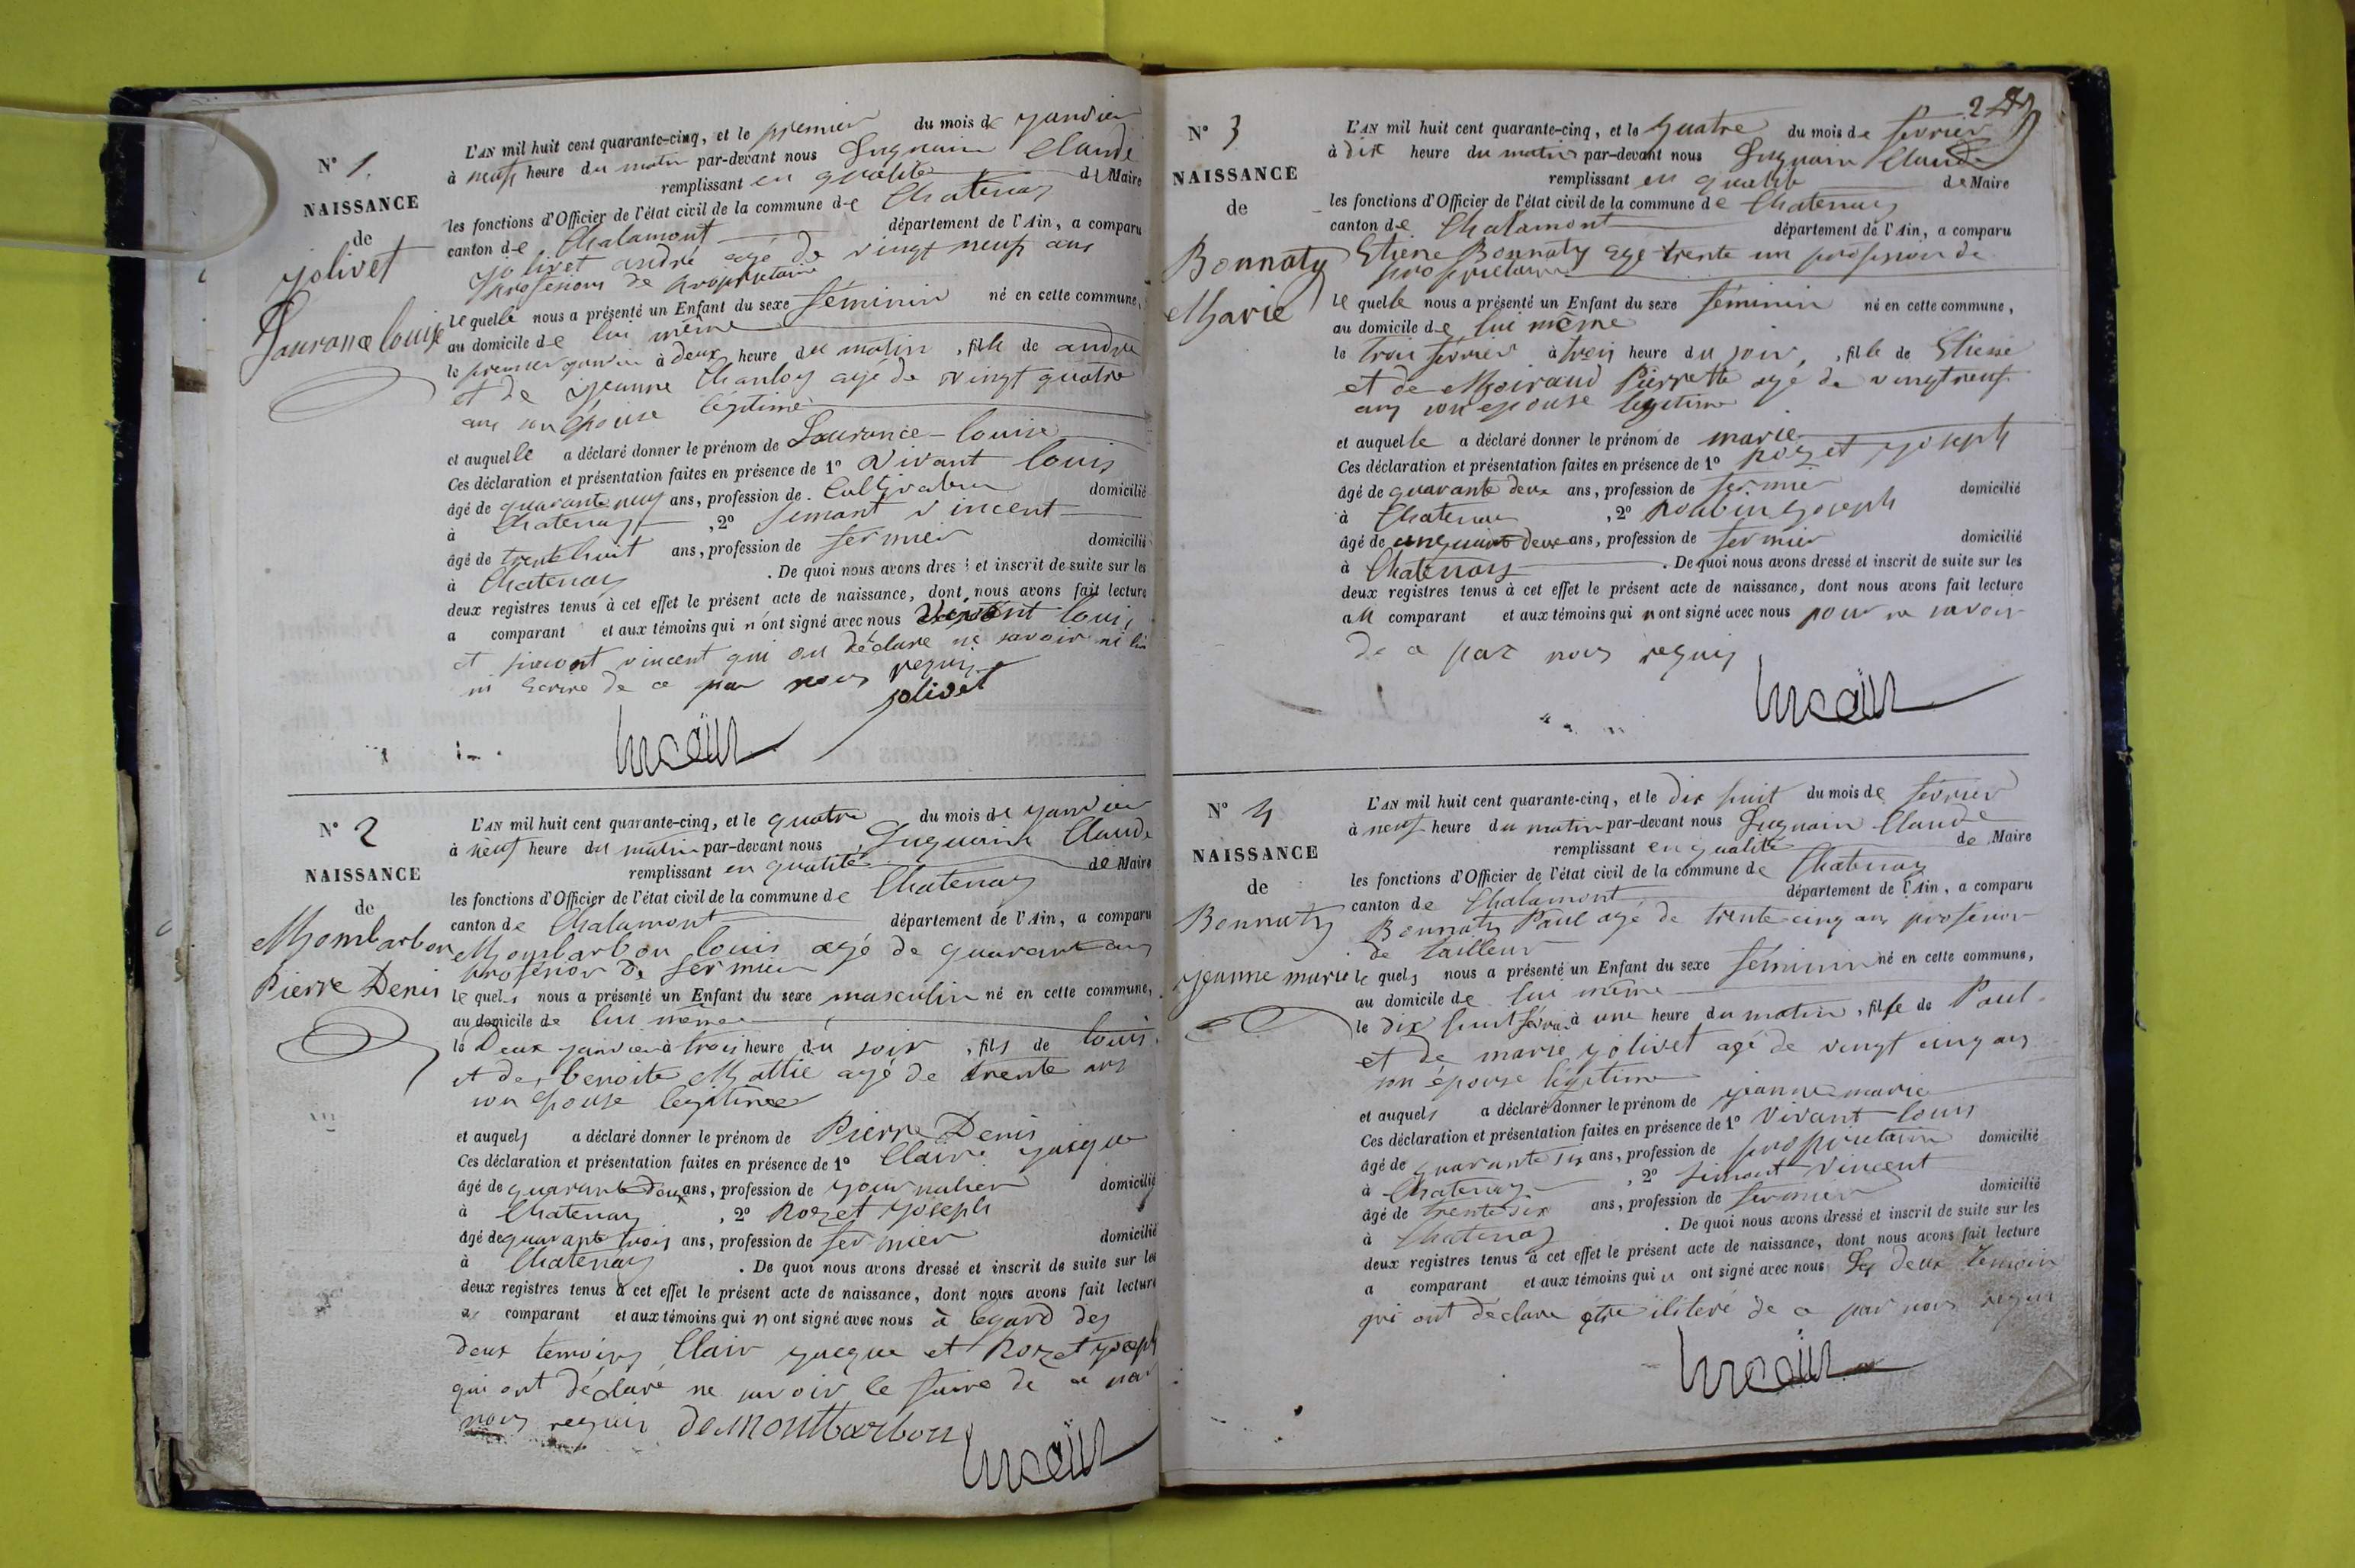 N° 1.
NAISSANCE
de
yolivet
Laurance louise
L'AN mil huit cent quarante-cinq, et le premier du mois de janvier
à neuf heure du matin par-devant nous Claude
remplissant en qualité de Maire
les fonctions d'Officier de l'état civil de la commune de Chatenay
canton de Chalamont département de l'Ain, a comparu
yolivet andré agé de vingt neuf ans
profession de propriétaire
le quelle nous a présenté un Enfant du sexe féminin né en cette commune,
au domicile de lui même
le premier janvier à deux heure du matin, fille de andre
et de jeanne Chanloy agé de vingt quatre
ans son épouse légitime
et auquelle a déclaré donner le prénom de Laurance-louise
Ces déclaration et présentation faites en présence de 1° Vivant louis
âgé de quarante neuf ans, profession de Cultivateur domicilié
à Chatenay, 2° Simant vincent
âgé de trente huit ans, profession de fermier domicilié
à Chatenay. De quoi nous avons dressé et inscrit de suite sur les
deux registres tenus à cet effet le présent acte de naissance, dont nous avons fait lecture
a comparant et aux témoins qui n ont signé avec nous louis
et simont vincent qui on déclare ne savoir ni lire
ni écrire de ce par nous requis
jolivet
N° 2
NAISSANCE
de
Mombarbon
Pierre Denis
L'AN mil huit cent quarante-cinq, et le quatre du mois de janvier
à neuf heure du matin par-devant nous Claude
remplissant en qualité de Maire
les fonctions d'Officier de l'état civil de la commune de Chatenay
canton de Chalamont département de l'Ain, a comparu
Mombarbon louis agé de quarante ans
profession de fermier
le quels nous a présenté un Enfant du sexe masculin né en cette commune,
au domicile de lui même
le Deux janvier à trois heure du soir, fils de louis
et de benoite Mattie agé de trente ans
son épouse legitime
et auquels a déclaré donner le prénom de Pierre Denis
Ces déclaration et présentation faites en présence de 1° Claire
âgé de quarante Deux ans, profession de journalier domicilié
à Chatenay, 2° Rozet yoseph
âgé de quarante trois ans, profession de fermier domicilié
à Chatenay. De quoi nous avons dressé et inscrit de suite sur les
deux registres tenus à cet effet le présent acte de naissance, dont nous avons fait lecture
a comparant et aux témoins qui n ont signé avec nous à legard des
deux temoins Clair yacque et Rozet yoseph
qui ont déclaré ne savoir le faire de ce par
nous requis demontbarbon
2
N° 3
NAISSANCE
de
Bonnaty
Marie
L'AN mil huit cent quarante-cinq, et le quatre du mois de février
à dix heure du matin par-devant nous Claude
remplissant en qualité de Maire
les fonctions d'Officier de l'état civil de la commune de Chatenay
canton de Chalamont département de l'Ain, a comparu
Etiene Bonnaty age trente un profession de
proprietaire
le quelle nous a présenté un Enfant du sexe féminin né en cette commune,
au domicile de lui même
le trois février à trois heure du soir, fille de Etiene
et de Moiraud Pierrette agé de vingt neuf
ans son epouse legitime
et auquelle a déclaré donner le prénom de marie
Ces déclaration et présentation faites en présence de 1° rozet yoseph
âgé de quarante deux ans, profession de fermier domicilié
à Chatenay, 2° Roubin yoseph
âgé de cinquante deux ans, profession de fermier domicilié
à Chatenay. De quoi nous avons dressé et inscrit de suite sur les
deux registres tenus à cet effet le présent acte de naissance, dont nous avons fait lecture
au comparant et aux témoins qui n ont signé avec nous pour ne savoir
de ce par nous requis
N° 4
NAISSANCE
de
Bonnaty
jeanne marie
L'AN mil huit cent quarante-cinq, et le dix huit du mois de février
à neuf heure du matin par-devant nous Claude
remplissant en qualité de Maire
les fonctions d'Officier de l'état civil de la commune de Chatenay
canton de Chalamont département de l'Ain, a comparu
Bonnaty Paul agé de trente cinq ans profession
de tailleur
le quels nous a présenté un Enfant du sexe féminin né en cette commune,
au domicile de lui même
le dix huit février à une heure du matin, fille de Paul
et de marie yolivet agé de vingt cinq ans
son épouse légitime
et auquels a déclaré donner le prénom de jeanne marie
Ces déclaration et présentation faites en présence de 1° Vivant louis
âgé de quarante six ans, profession de proprietaire domicilié
à Chatenay, 2° simont vincent
âgé de trente six ans, profession de fermier domicilié
à Chatenay. De quoi nous avons dressé et inscrit de suite sur les
deux registres tenus à cet effet le présent acte de naissance, dont nous avons fait lecture
a comparant et aux témoins qui n ont signé avec nous Les deux temoin
qui ont déclare être iliteré de ce par nous requis